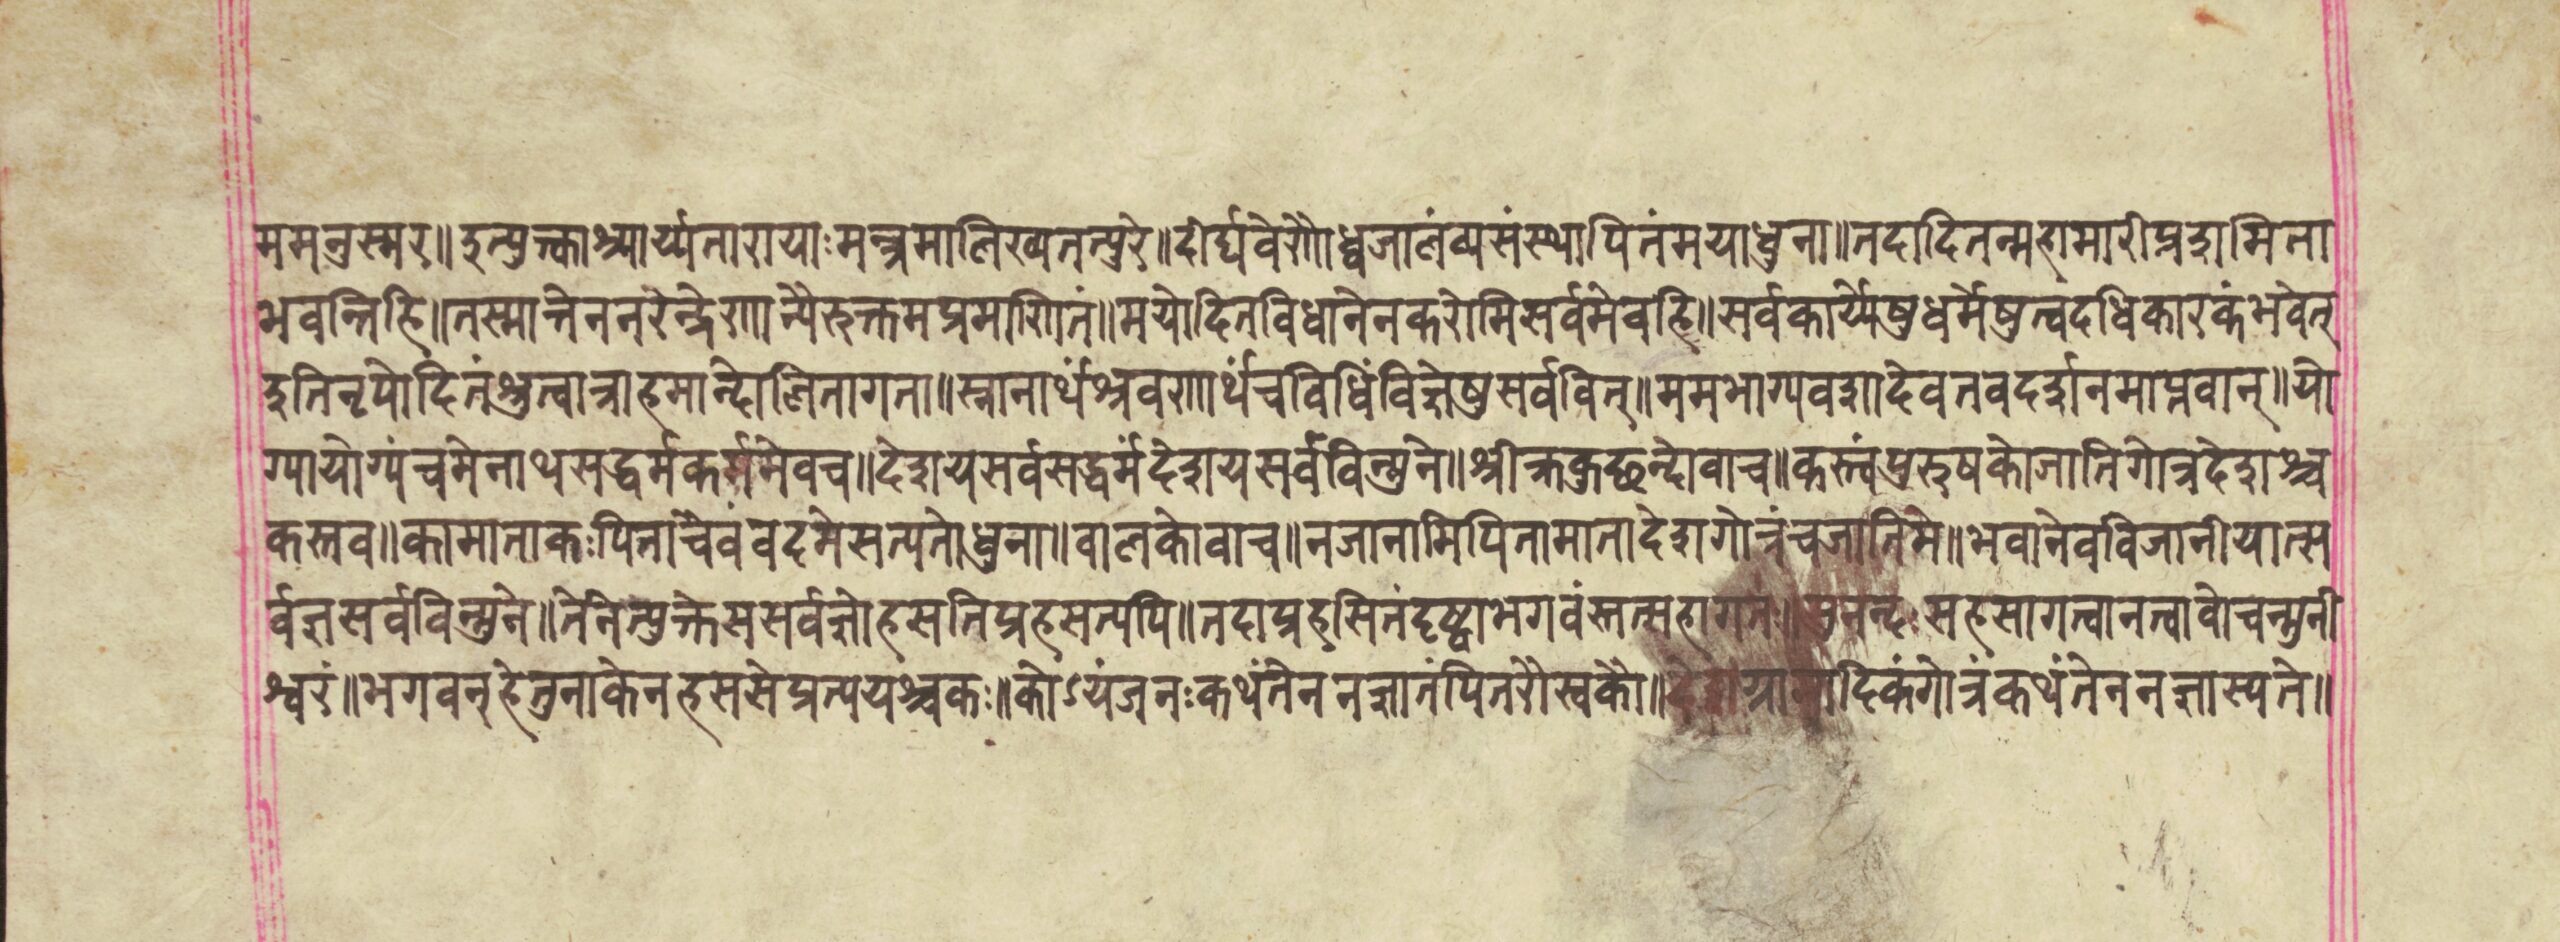 ममनुस्मर॥इत्युक्त्वाश्यार्य्यतारायाःमन्त्रमालिख्यतत्पुरे॥दीर्घवेणौध्वजालंव्यसंस्थापितंमयाधुना॥तदादितन्महामारीप्रशमिता
भवन्तिहि॥तस्मात्तेननरेन्द्रेणान्यैरुक्तमप्रमाणितं॥मयोदितविधानेनकरोमिसर्वमेवहि॥सर्वकार्य्येषुधर्मेषुत्वदधिकारकंभवेत्
इतिनृपोदितंश्रुत्वात्राहमान्दोलितागता॥स्नानार्थंश्रवणार्थंचविधिंविज्ञेषुसर्ववित्॥ममभाग्यवशादेवतवदर्शनमाप्नवान्॥यो
ग्यायोग्यंचमेनाथसद्धर्मकर्ममेवच॥देशयसर्वसद्धर्मंदेशयसर्वविन्मुने॥श्रीक्रकुछन्दोवाच॥कस्त्वंपुरुषकोजातिगोत्रदेशश्च
कस्तव॥कामाताकःपितांचैवंवदमेसत्यतोधुना॥बालकोवाच॥नजानामिपितामातादेशगोत्रंचजातिमे॥भवानेवविजानीयात्स
र्वज्ञसर्वविन्मुने॥तेनेत्युक्तेससर्वज्ञोहसतिप्रहसत्यपि॥तदाप्रहसितंदृष्ट्वाभगवंस्तत्सहागतः॥सुनन्दःसहसागत्वानत्वावोचन्मुनी
श्वरं॥भगवन्हेतुनाकेनहससेप्रत्ययश्चकः॥कोऽयंजनःकथंतेननज्ञातंपितरौस्वकौ॥देशग्रामादिकंगोत्रंकथंतेननज्ञास्यते॥